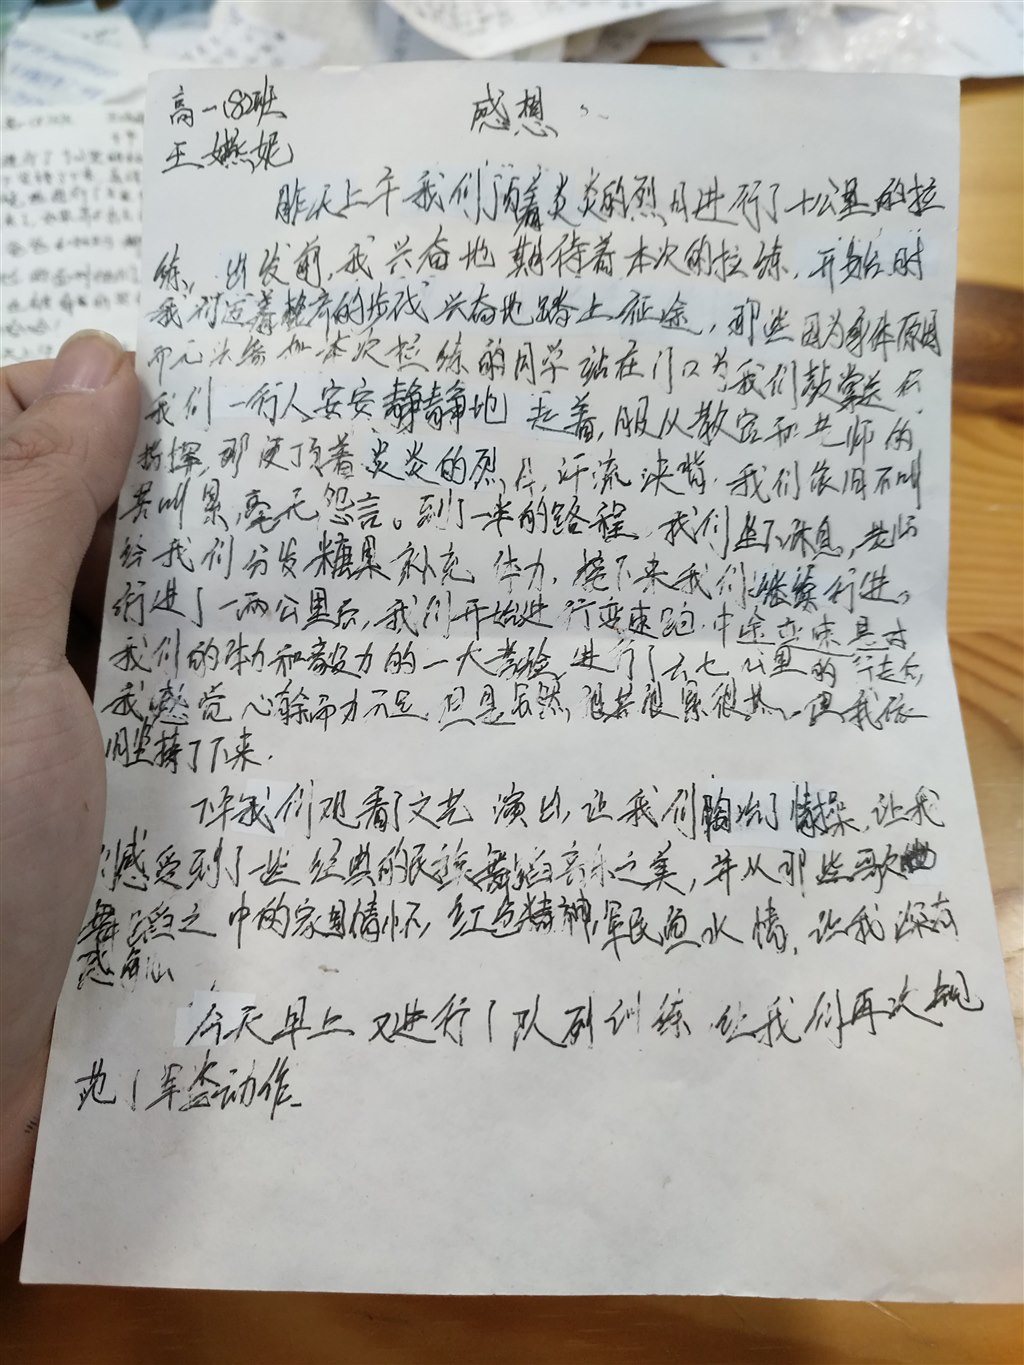 高一182班
感想
王嬿妮
昨天上午我们顶着炎炎的烈日进行了十公里的拉
练。出发前,我兴奋地期待着本次的拉练,开始时
我们迈着整齐的步伐兴奋地踏上征途,那些因为身体原因
而无法参加本次拉练的同学站在门口为我们鼓掌
我们一行人安安静静地走着,服从教官和老师的
指挥,那便顶着炎炎的烈日,汗流浃背,我们依旧不叫
苦叫累,毫无怨言。到了一半的路程,我们坐下休息,老师
给我们分发糖果补充体力,接下来我们继续行进。
行进了一两公里后,我们开始进行变速跑,中途变速是对
我们的体力和毅力的一大考验,进行了六七公里的行走后,
我感觉心余而力不足,但是虽然很苦很累很热,但我依
旧坚持了下来.
下午我们观看了文艺演出,让我们陶冶了情操,让我
们感受到了一些经典的民族舞蹈音乐之美,并从那些歌曲
舞蹈之中的家国情怀,红色精神,军民鱼水情,让我深有
感触
今天早上又进行了队列训练让我们再次规
范了军姿动作